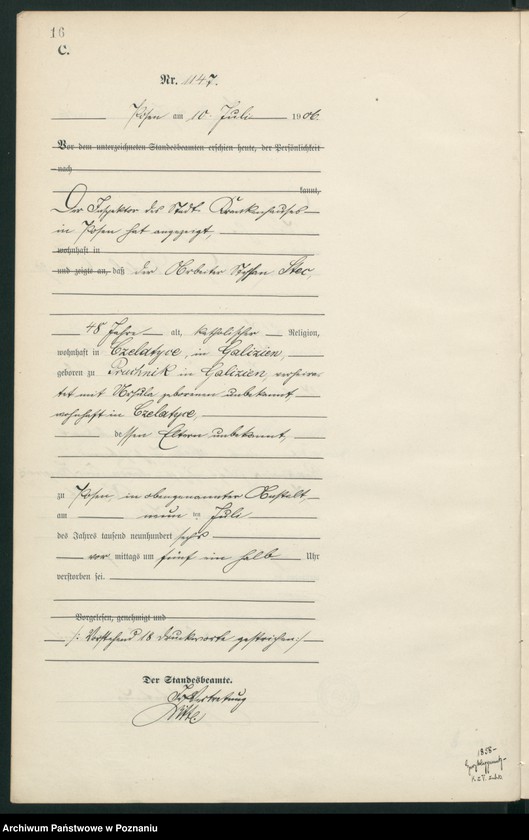 16
C.
Nr. 1147.
Posen am 10. Juli 1906.
Vor dem unterzeichneten Standesbeamten erschien heute, der Persönlichkeit
nach
kannt,
Der Inspektor des Stadt. Krankenhauses
in Posen hat angezeigt,
wohnhaft in
und zeigte an, daß der Arbeiter Stefan Stec,
48 Jahre alt, katholischer Religion,
wohnhaft in Czelatyce, in Galizien,
geboren zu Pruchnik in Galizien, verheira-
tet mit geborenen unbekannt,
wohnhaft in Czelatyce,
dessen Eltern unbekannt,
zu Posen, in obengenannter Anstalt,
am neun ten Juli
des Jahres tausend neunhundert sechs
vor mittags um fünf ein halb Uhr
verstorben sei.
Vorgelesen, genehmigt und
/: Vorstehend 18 Druckworte gestrichen :/
Der Standesbeamte.
In Vertretung
1858
Archiwum Państwowe w Poznaniu